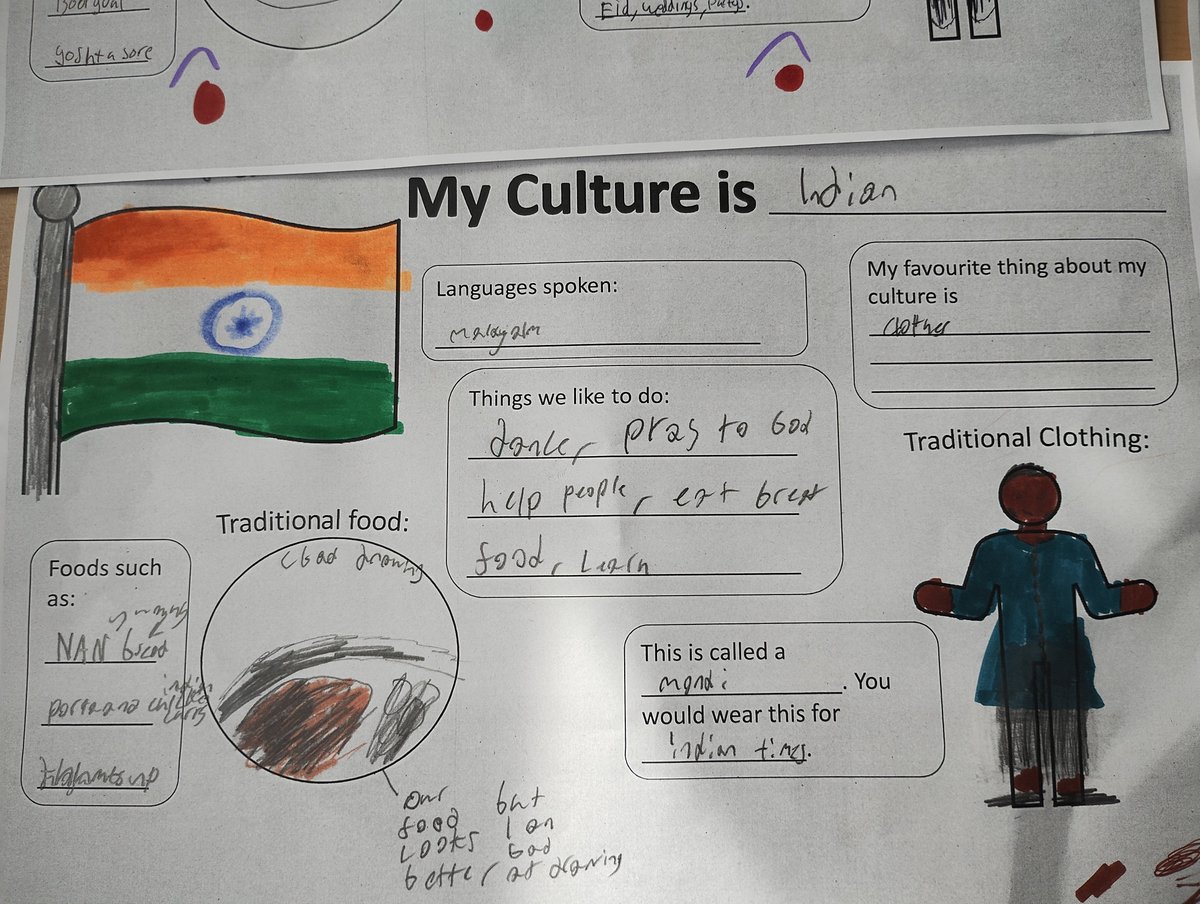 yoshta sore
Eid, weddings, partys.
My Culture is Indian
Languages spoken:
malayalm
My favourite thing about my
culture is
clother
Things we like to do:
dance, pray to God
help people, eat
food, Learn
Traditional Clothing:
Traditional food:
(bad drawing
Foods such
as:
yummy
NAN bread
indian
curry
This is called a
mondi. You
would wear this for
indian times.
our but
food I am
Looks bad
better at drawing